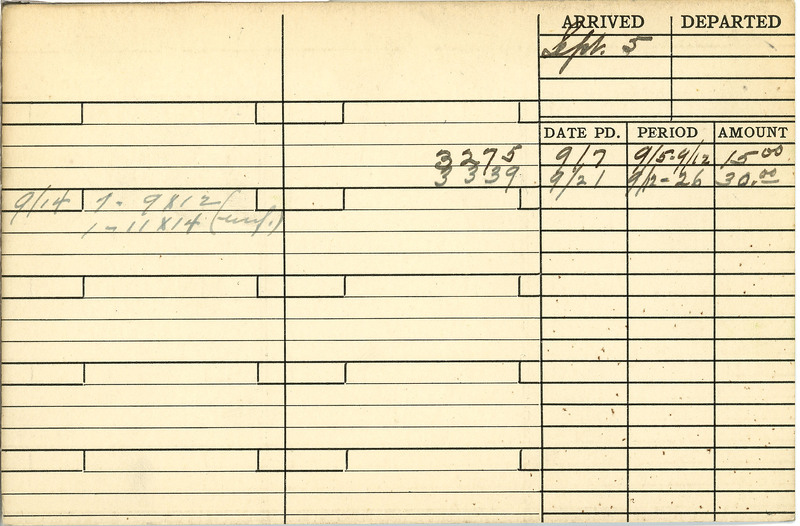 ARRIVED DEPARTED
Sept. 5
DATE PD. PERIOD AMOUNT
3275 9/7 9/5-9/12 15.00
3339 9/21 9/12-26 30.00
9/14 1- 9X12
1-11X14 (unf.)